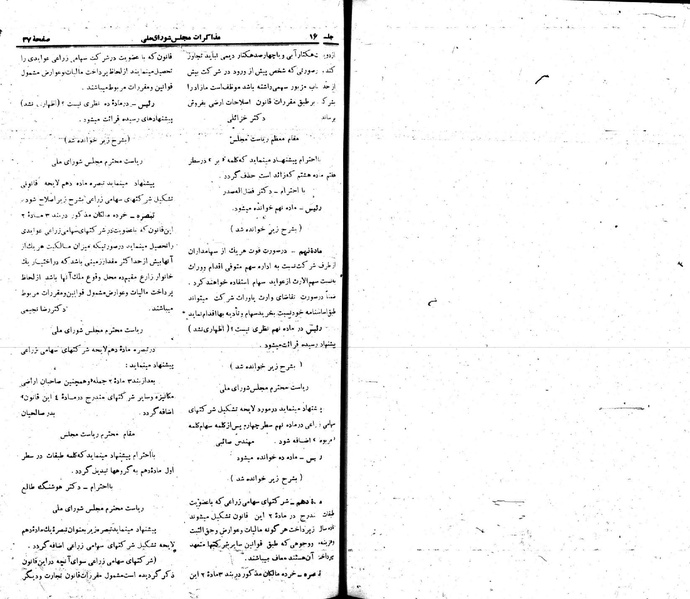 جلسه ۱۶ مذاکرات مجلس شورای ملی صفحهٔ ۳۷
هکتار آبی و یا چهارصد هکتار دیمی نباید تجاوز
صورتی که شخص پیش از ورود در شرکت بیش
مزبور سهمی داشته باشد موظف است مازاد را
بر طبق مقررات قانون اصلاحات ارضی بفروش
برساند دکتر خزائلی
مقام معظم ریاست مجلس
با احترام پیشنهاد مینماید که کلمه و بر ۲ در سطر
هفتم ماده هشتم که زائد است حذف گردد .
با احترام - دکتر فضل‌الصدر
رئیس - ماده نهم خوانده میشود.
( بشرح زیر خوانده شد )
مادهٔ نهم - در صورت فوت هر یک از سهامداران
از طرف شرکت نسبت به اداره سهم متوفی اقدام و وراث
به نسبت سهم‌الارث از عواید سهام استفاده خواهند کرد .
در صورت تقاضای وارث یا وراث شرکت میتواند
طبق اساسنامه خود نسبت بخرید سهام و تأدیه بها اقدام نماید
رئیس - در ماده نهم نظری نیست ؟ ( اظهاری نشد )
پیشنهاد رسیده قرائت میشود .
( بشرح زیر خوانده شد )
ریاست محترم مجلس شورای ملی
پیشنهاد مینماید در مورد لایحه تشکیل شرکتهای
سهامی زراعی در ماده نهم سطر چهارم پس از کلمه سهام کلمه
مربوط ۲ اضافه شود . مهندس صائبی
رئیس - ماده ده خوانده میشود
( بشرح زیر خوانده شد )
ماده دهم - شرکتهای سهامی زراعی که با عضویت
مندرج در مادهٔ ۲ این قانون تشکیل میشوند
از پرداخت هر گونه مالیات و عوارض و حق‌الثبت
و هزینه و وجوهی که طبق قوانین سایر شرکتها متعهد
پرداخت آن هستند معاف میباشند.
تبصره - خرده مالکان مذکور در بند ۳ مادهٔ ۲ این
قانون که با عضویت در شرکت سهامی زراعی عوایدی
تحصیل مینمایند از لحاظ پرداخت مالیات و عوارض مشمول
قوانین و مقررات مربوط میباشند.
رئیس - در ماده ده نظری نیست ؟ ( اظهاری نشد )
پیشنهادهای رسیده قرائت میشود .
( بشرح زیر خوانده شد )
ریاست محترم مجلس شورای ملی
پیشنهاد مینماید تبصره ماده دهم لایحه قانونی
تشکیل شرکتهای سهامی زراعی بشرح زیر اصلاح شود .
تبصره - خرده مالکان مذکور در بند ۳ مادهٔ ۲
این قانون که با عضویت در شرکتهای سهامی زراعی عوایدی
را تحصیل مینماید در صورتیکه میزان مالکیت هر یک از
آنها بیش از حداکثر مقدار زمینی باشد که در اختیار یک
خانوار زارع مقیم ده محل وقوع ملک آنها باشد از لحاظ
پرداخت مالیات و عوارض مشمول قوانین و مقررات مربوط
میباشند . دکتر رضا نجیمی
ریاست محترم مجلس شورای ملی
در تبصره مادهٔ دهم لایحه شرکتهای سهامی زراعی
پیشنهاد مینماید :
بعد از بند ۳ مادهٔ ۲ جمله و همچنین صاحبان اراضی
مکانیزه و سایر شرکتهای مندرج در مادهٔ ٤ این قانون
اضافه گردد . بدر صالحیان
مقام محترم ریاست مجلس
با احترام پیشنهاد مینماید که کلمه طبقات در سطر
اول مادهٔ دهم به گروهها تبدیل گردد .
با احترام - دکتر هوشنگ طالع
ریاست محترم مجلس شورای ملی
پیشنهاد مینماید تبصره زیر بعنوان تبصره یک ماده دهم
قانون شرکتهای سهامی زراعی اضافه گردد .
( شرکتهای سهامی زراعی سوای آنچه در این قانون
ذکر گردیده است مشمول مقررات قانون تجارت و دیگر